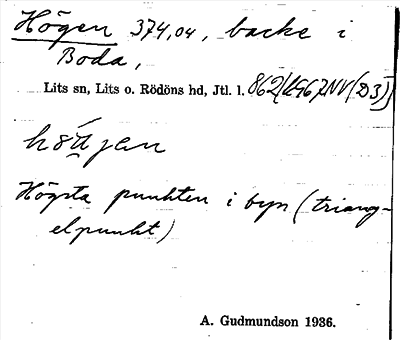 Högen 374,04, backe i
Boda,
Lits sn, Lits o. Rödöns hd, Jtl. l.
Högsta punkten i byn (triang-
elpunkt)
A. Gudmundson 1936.